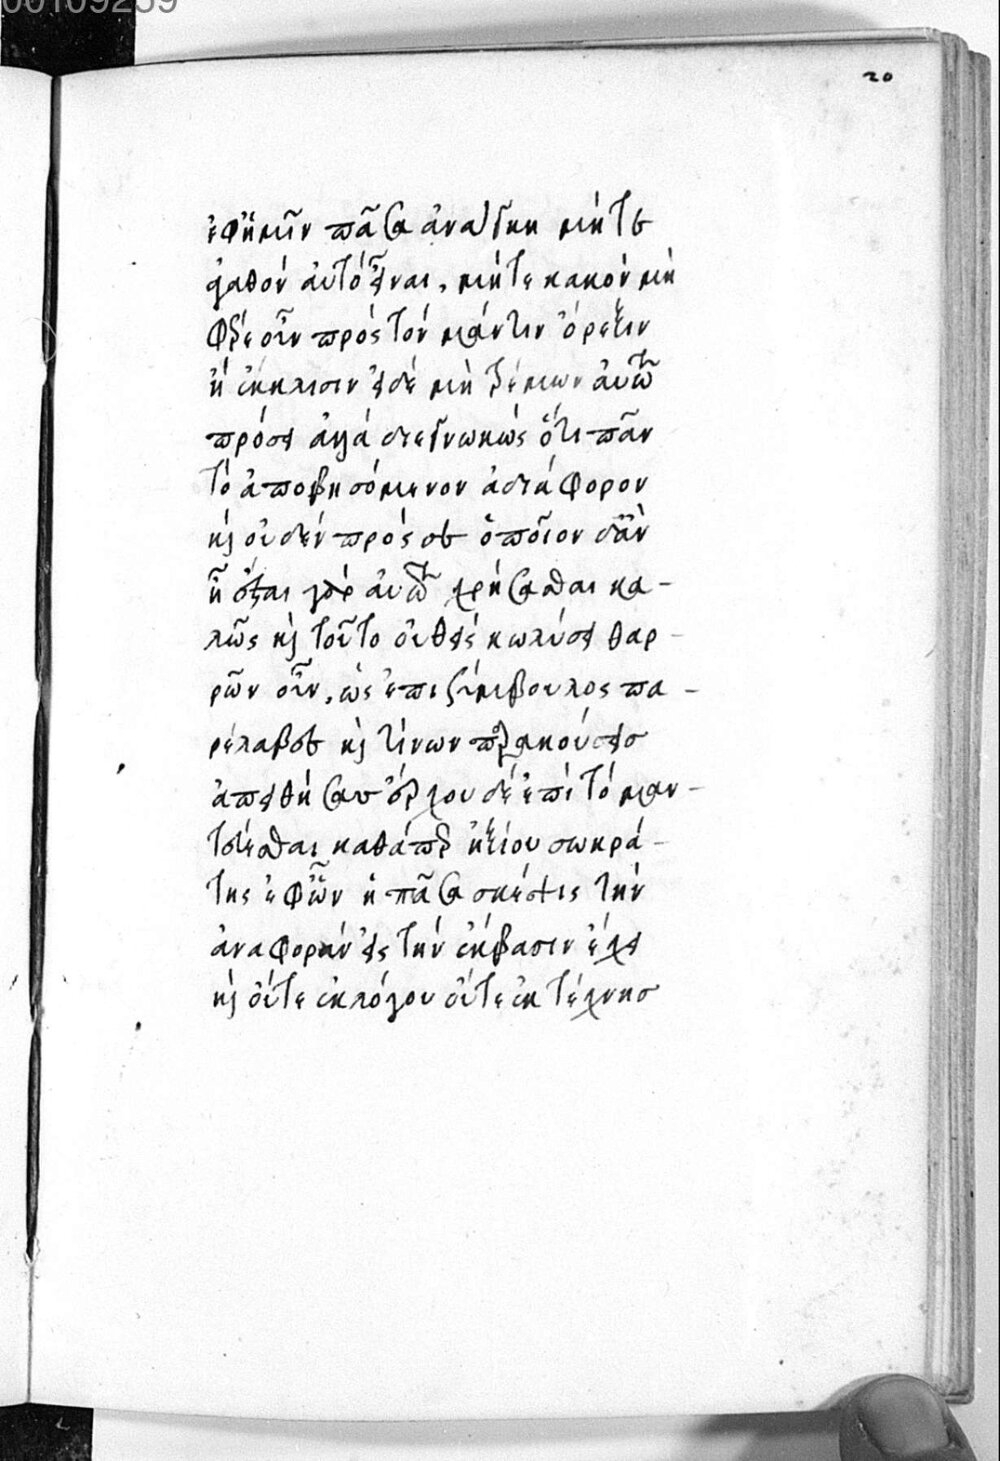 00109259
20
ἐφ' ἡμῖν πᾶσα ἀνάγκη μήτε
ἀγαθὸν αὐτὸ εἶναι, μήτε κακόν μὴ
φέρε οὖν πρὸς τὸν μάντιν ὄρεξιν
ἢ ἔκκλισιν εἰ δὲ μὴ τρέμων αὐτῷ
πρόσει ἀλλὰ διεγνωκὼς ὅτι πᾶν
τὸ ἀποβησόμενον ἀδιάφορον
καὶ οὐδὲν πρός σε ὁποῖον δ' ἂν
ᾖ ἔσται γὰρ αὐτῷ χρήσασθαι κα-
λῶς καὶ τοῦτο οὐθεὶς κωλύσει θαρ-
ρῶν οὖν, ὡς ἐπὶ συμβούλος πα-
ρέλαβες καὶ τίνων παρακούσεισ
ἀπειθήσασ ἔρχου δὲ ἐπὶ τὸ μαν-
τεύεσθαι καθάπερ ἠξίου σωκρά-
της ἐφ' ὧν ἡ πᾶσα σκέψις τὴν
ἀναφορὰν εἰς τὴν ἔκβασιν ἔχει
καὶ οὔτε ἐκ λόγου οὔτε ἐκ τέχνησ